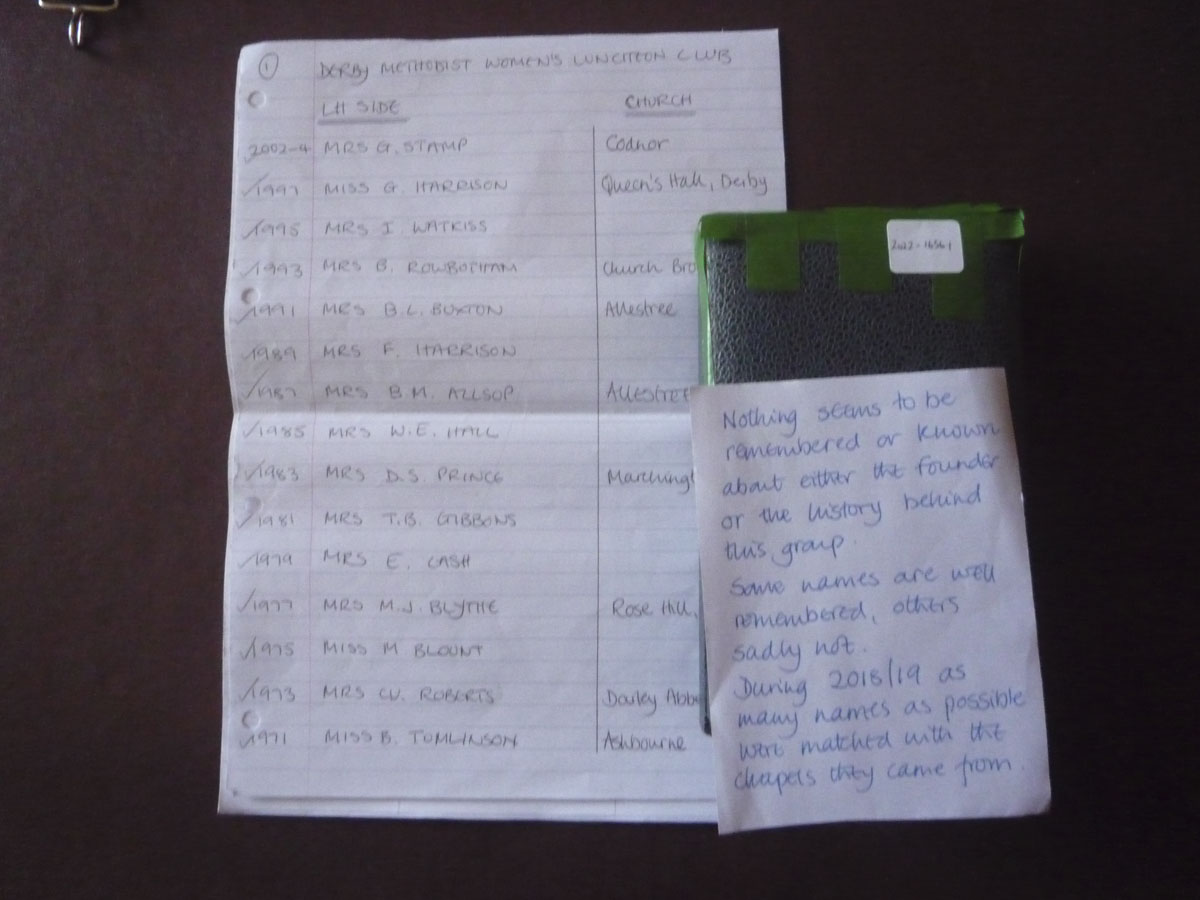 ① DERBY METHODIST WOMEN'S LUNCHEON CLUB
LH SIDE CHURCH
2002-4 MRS G. STAMP Codnor
1997 MISS G. HARRISON Queen's Hall, Derby
1995 MRS I. WATKISS
1993 MRS B. ROWBOTHAM Church Bro
1991 MRS B.L. BUXTON Allestree
1989 MRS F. HARRISON
1987 MRS B.M. ALLSOP Allestree
1985 MRS W.E. HALL
1983 MRS D.S. PRINCE Marchingt
1981 MRS T.B. GIBBONS
1979 MRS E. CASH
1977 MRS M.J. BLYTHE Rose Hill,
1975 MISS M BLOUNT
1973 MRS W. ROBERTS Darley Abbe
1971 MISS B. TOMLINSON Ashbourne
Nothing seems to be
remembered or known
about either the founder
or the history behind
this group.
Some names are well
remembered, others
sadly not.
During 2018/19 as
many names as possible
were matched with the
chapels they came from.